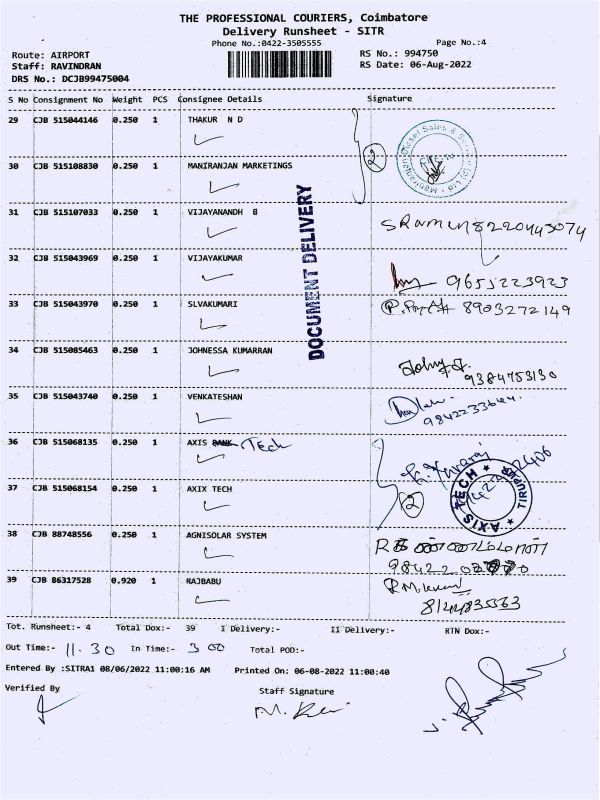 THE PROFESSIONAL COURIERS, Coimbatore
Delivery Runsheet - SITR
Phone No.:0422-3505555
Page No.:4
Route: AIRPORT
Staff: RAVINDRAN
DRS No.: DCJB99475004
RS No.: 994750
RS Date: 06-Aug-2022
S No Consignment No Weight PCS Consignee Details Signature
29 CJB 515044146 0.250 1 THAKUR N D
2
30 CJB 515108830 0.250 1 MANIRANJAN MARKETINGS
DOCUMENT DELIVERY
31 CJB 515107033 0.250 1 VIJAYANANDH B
8220443074
32 CJB 515043969 0.250 1 VIJAYAKUMAR
9655223923
33 CJB 515043970 0.250 1 SLVAKUMARI
8903272149
34 CJB 515085463 0.250 1 JOHNESSA KUMARRAN
9384753130
35 CJB 515043740 0.250 1 VENKATESHAN
36 CJB 515068135 0.250 1 AXIS BANK Tech
37 CJB 515068154 0.250 1 AXIX TECH
2
AXIS TECH ★ TIRUPUR ★
38 CJB 88748556 0.250 1 AGNISOLAR SYSTEM
39 CJB 86317528 0.920 1 RAJBABU
Tot. Runsheet:- 4 Total Dox:- 39 I Delivery:- II Delivery:- RTN Dox:-
Out Time:- 11.30 In Time:- 3 00 Total POD:-
Entered By :SITRA1 08/06/2022 11:00:16 AM Printed On: 06-08-2022 11:00:40
Verified By
Staff Signature